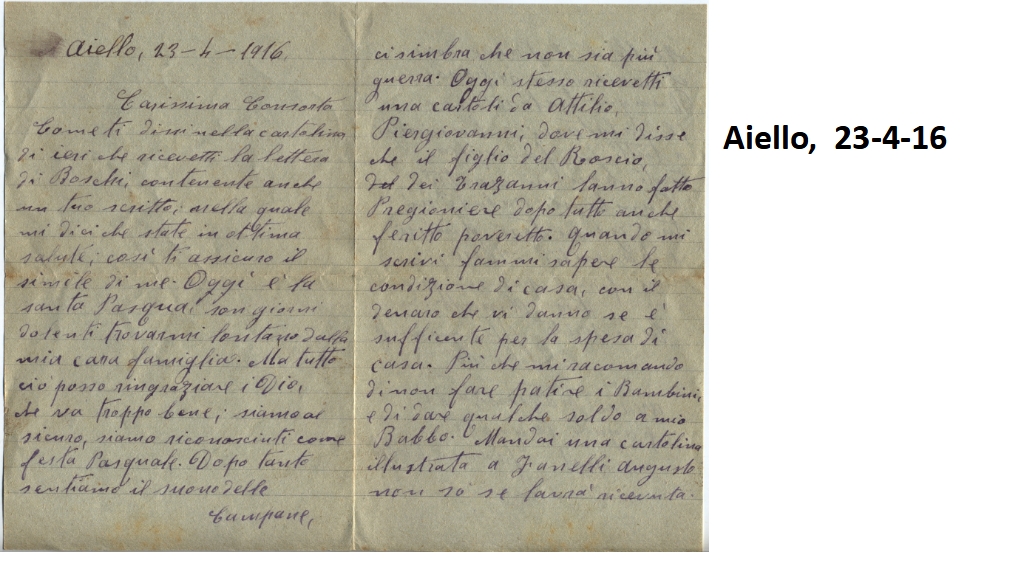 Aiello, 23-4-1916.
Carissima Consorta
Come ti dissi nella cartolina
di ieri che ricevetti la lettera
di Boschi, contenente anche
un tuo scritto, nella quale
mi dici che state in ottima
salute, così ti assicuro il
simile di me. Oggi è la
santa Pasqua, son giorni
dolenti trovarmi lontano dalla
mia cara famiglia. Ma tutto
ciò posso ringraziare i Dio,
che va troppo bene, siamo al
sicuro, siamo riconosciuti come
festa Pasquale. Dopo tanto
sentiamo il suono delle
Campane,
ci simbra che non sia più
guerra. Oggi stesso ricevetti
una cartoli da Attilio,
Piergiovanni, dove mi disse
che il figlio del Roscio,
del dei Trazanni lanno fatto
Pregioniere dopo tutto anche
feritto poveretto. Quando mi
scrivi fammi sapere le
condizione di casa, con il
denaro che vi danno se è
sufficente per la spesa di
casa. Più che mi racomando
di non fare patire i Bambini,
e di dare qualche soldo a mio
Babbo. Mandai una cartolina
illustrata a Fanelli Augusto
non so se lavrà ricevuta.
Aiello, 23-4-16